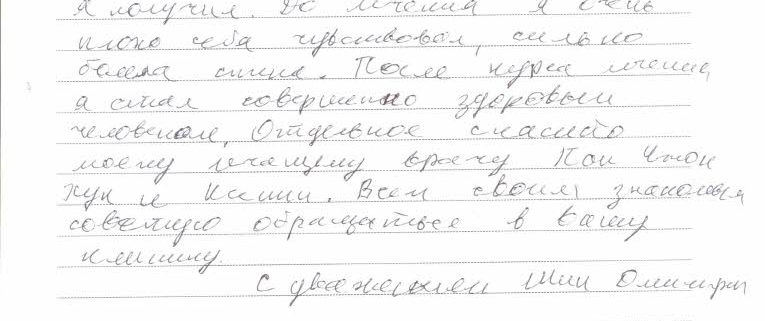 я получил. До лечения я очень
плохо себя чувствовал, сильно
болела спина. После курса лечения
я стал совершенно здоровым
человеком, Отдельное спасибо
моему лечащему врачу Пак
и Всем своим знакомым
советую обращаться в вашу
клинику.
с уважением